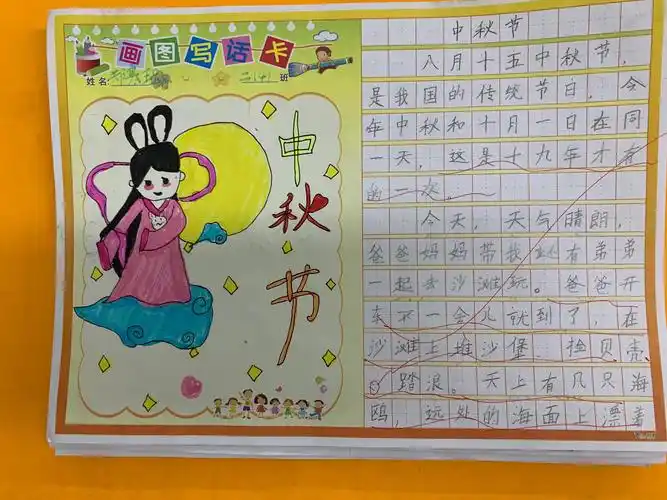 画图写话卡
姓名:
二(4)班
中秋节
中秋节
八月十五中秋节,
是我国的传统节日,今
年中秋和十月一日在同
一天,这是十九年才有
的一次。
今天,天气晴朗,
爸爸妈妈带我还有弟弟
一起去沙滩玩。爸爸开
车不一会儿就到了,在
沙滩上堆沙堡、捡贝壳、
踏浪。天上有几只海
鸥,远处的海面上漂着